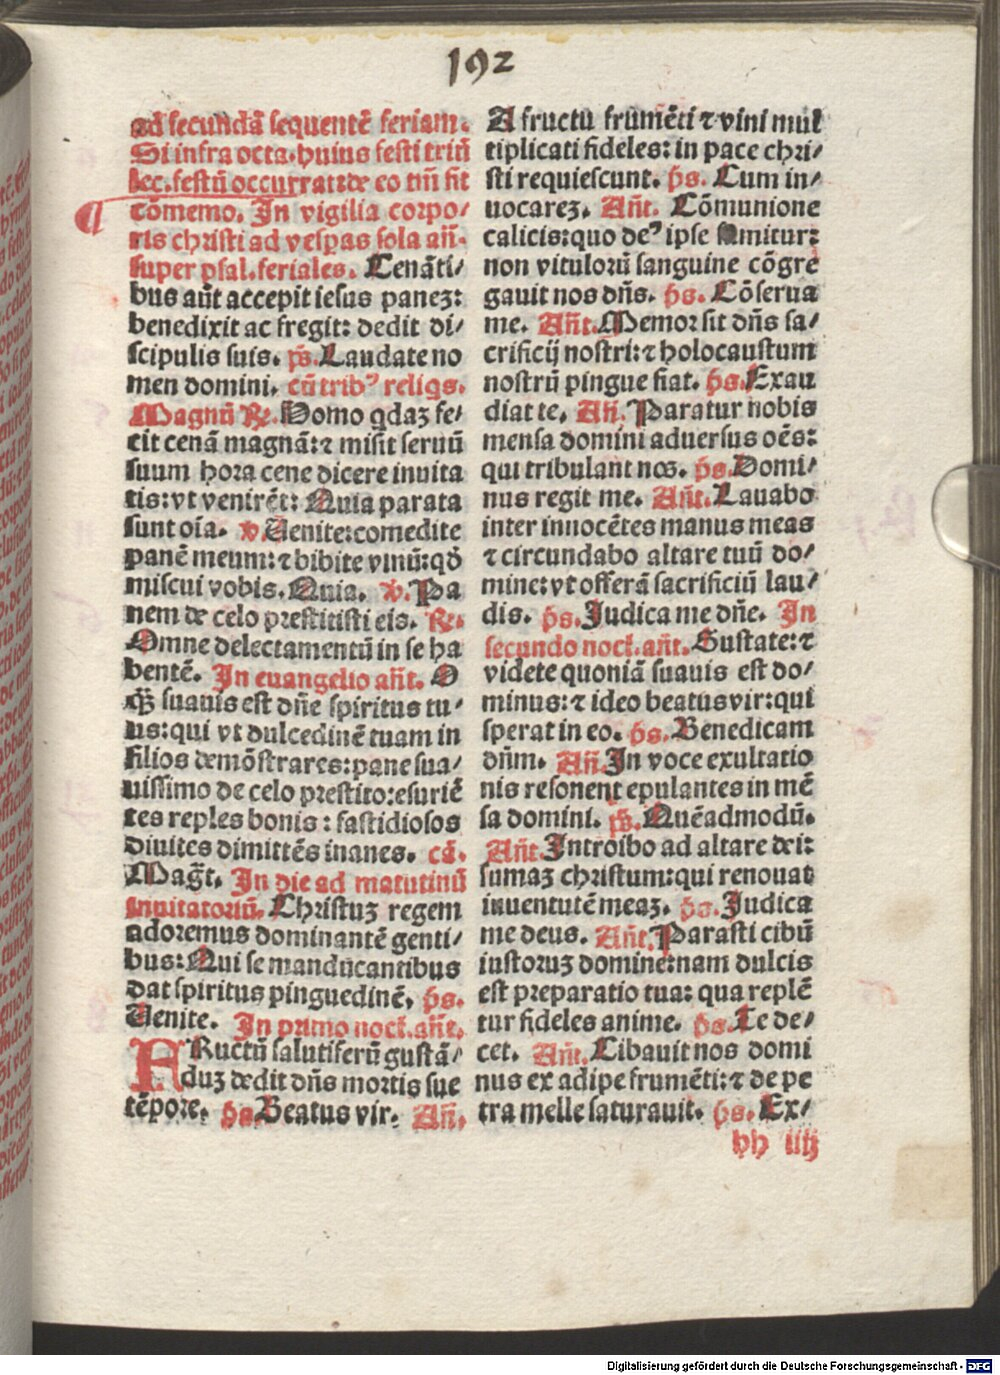 192
ad secundā sequentē feriam.
Si infra octa. huius festi triū
lec. festū occurrat: de eo tm̄ fit
cōmemo. In vigilia corpo/
ris christi ad vesperas sola añ.
super psal. feriales. Cenāti/
bus aūt accepit iesus panez:
benedixit ac fregit: dedit di/
scipulis suis. p̄s. Laudate no
men domini. cū trib⁹ reliqs.
Magnū R̄. Homo qdaz fe/
cit cenā magnā: ⁊ misit seruū
suum hora cene dicere inuita
tis: vt venirēt: Quia parata
sunt oīa. v̄. Uenite: comedite
panē meum: ⁊ bibite vinū: qđ
miscui vobis. Quia. v̄. Pa
nem de celo prestitisti eis. R̄.
Omne delectamentū in se ha
bentē. In euangelio añt. O
q̄ȝ suauis est dñe spiritus tu/
us: qui vt dulcedinē tuam in
filios demōstrares: pane sua/
uissimo de celo prestito: esuriē
tes reples bonis: fastidiosos
diuites dimittēs inanes. cā.
Mag̃t. In die ad matutinū
inuitatoriū. Christuz regem
adoremus dominantē genti/
bus: Qui se manducantibus
dat spiritus pinguedinē. p̄s.
Uenite. In primo noct. añt.
FRuctū salutiferū gustā/
duz dedit dñs mortis sue
tēpore. p̄s. Beatus vir. Añ.
A fructu frumēti ⁊ vini mul
tiplicati fideles: in pace chri/
sti requiescunt. p̄s. Cum in/
uocarez. Añt. Cōmunione
calicis: quo de⁹ ipse sumitur:
non vitulorū sanguine cōgre
gauit nos dñs. p̄s. Cōserua
me. Añt. Memor sit dñs sa/
crificij nostri: ⁊ holocaustum
nostrū pingue fiat. p̄s. Exau
diat te. Añ. Paratur nobis
mensa domini aduersus oēs:
qui tribulant nos. p̄s. Domi/
nus regit me. Añt. Lauabo
inter innocētes manus meas
⁊ circundabo altare tuū do/
mine: vt offerā sacrificiū lau/
dis. p̄s. Judica me dñe. In
secundo noct. añt. Gustate: ⁊
videte quoniā suauis est do/
minus: ⁊ ideo beatus vir: qui
sperat in eo. p̄s. Benedicam
dñm. Añ. In voce exultatio
nis resonent epulantes in mē
sa domini. p̄s. Quēadmodū.
Añt. Introibo ad altare dei:
sumaz christum: qui renouat
iuuentutē meaz. p̄s. Judica
me deus. Añt. Parasti cibū
iustoruz domine: nam dulcis
est preparatio tua: qua replē
tur fideles anime. p̄s. Te de/
cet. Añt. Cibauit nos domi
nus ex adipe frumēti: ⁊ de pe
tra melle saturauit. p̄s. Ex/
hh iiij
Digitalisierung gefördert durch die Deutsche Forschungsgemeinschaft - DFG